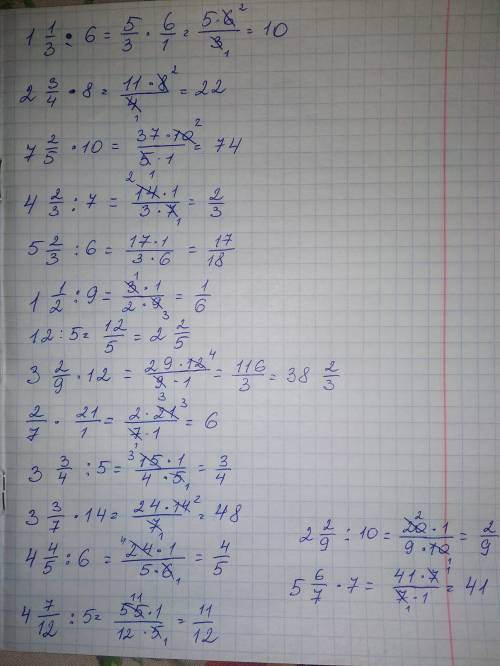 1 1/3 : 6 = 5/3 · 6/1 = 5·6²/3₁ = 10
2 3/4 · 8 = 11·8²/4₁ = 22
7 2/5 · 10 = 37·10²/5·1 = 74
4 2/3 : 7 = ²14·1/3·7₁ = 2/3
5 2/3 : 6 = 17·1/3·6 = 17/18
1 1/2 : 9 = ¹3·1/2·9₃ = 1/6
12 : 5 = 12/5 = 2 2/5
3 2/9 · 12 = 29·12⁴/9₃·1 = 116/3 = 38 2/3
2/7 · 21/1 = 2·21³/7·1 = 6
3 3/4 : 5 = ³15·1/4·5₁ = 3/4
3 3/7 · 14 = 24·14²/7₁ = 48
4 4/5 : 6 = ⁴24·1/5·6₁ = 4/5
4 7/12 : 5 = ¹¹55·1/12·5₁ = 11/12
2 2/9 : 10 = ²20·1/9·10 = 2/9
5 6/7 · 7 = 41·7¹/7₁·1 = 41